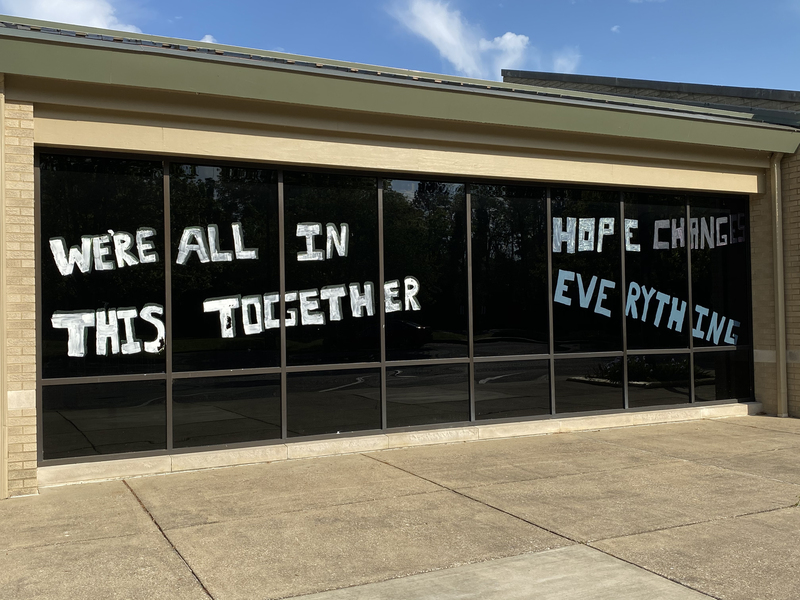 WE'RE ALL IN
THIS TOGETHER
HOPE CHANGES
EVERYTHING